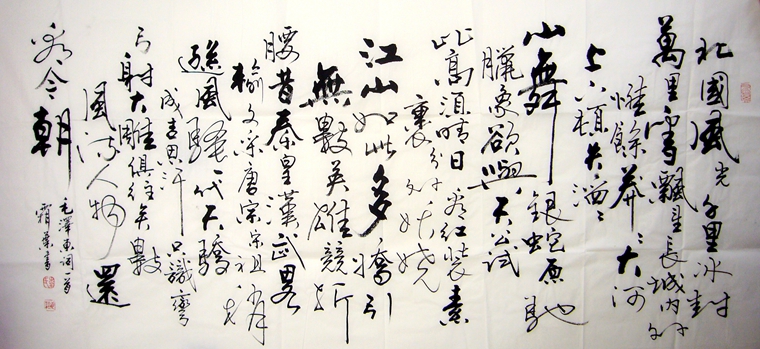 北國風光千里冰封
萬里雪飄望長城內外
惟餘莽々大河
上下頓失滔々
山舞銀蛇原馳
臘象欲與天公試
比高須晴日看紅裝素
裹分外妖嬈
江山如此多嬌引
無數英雄競折
腰昔秦皇漢武略
輸文采唐宗宋祖稍
遜風騷一代天驕
成吉思汗只識彎
弓射大雕俱往矣數
風流人物還
看今朝
毛澤東詞一首
書